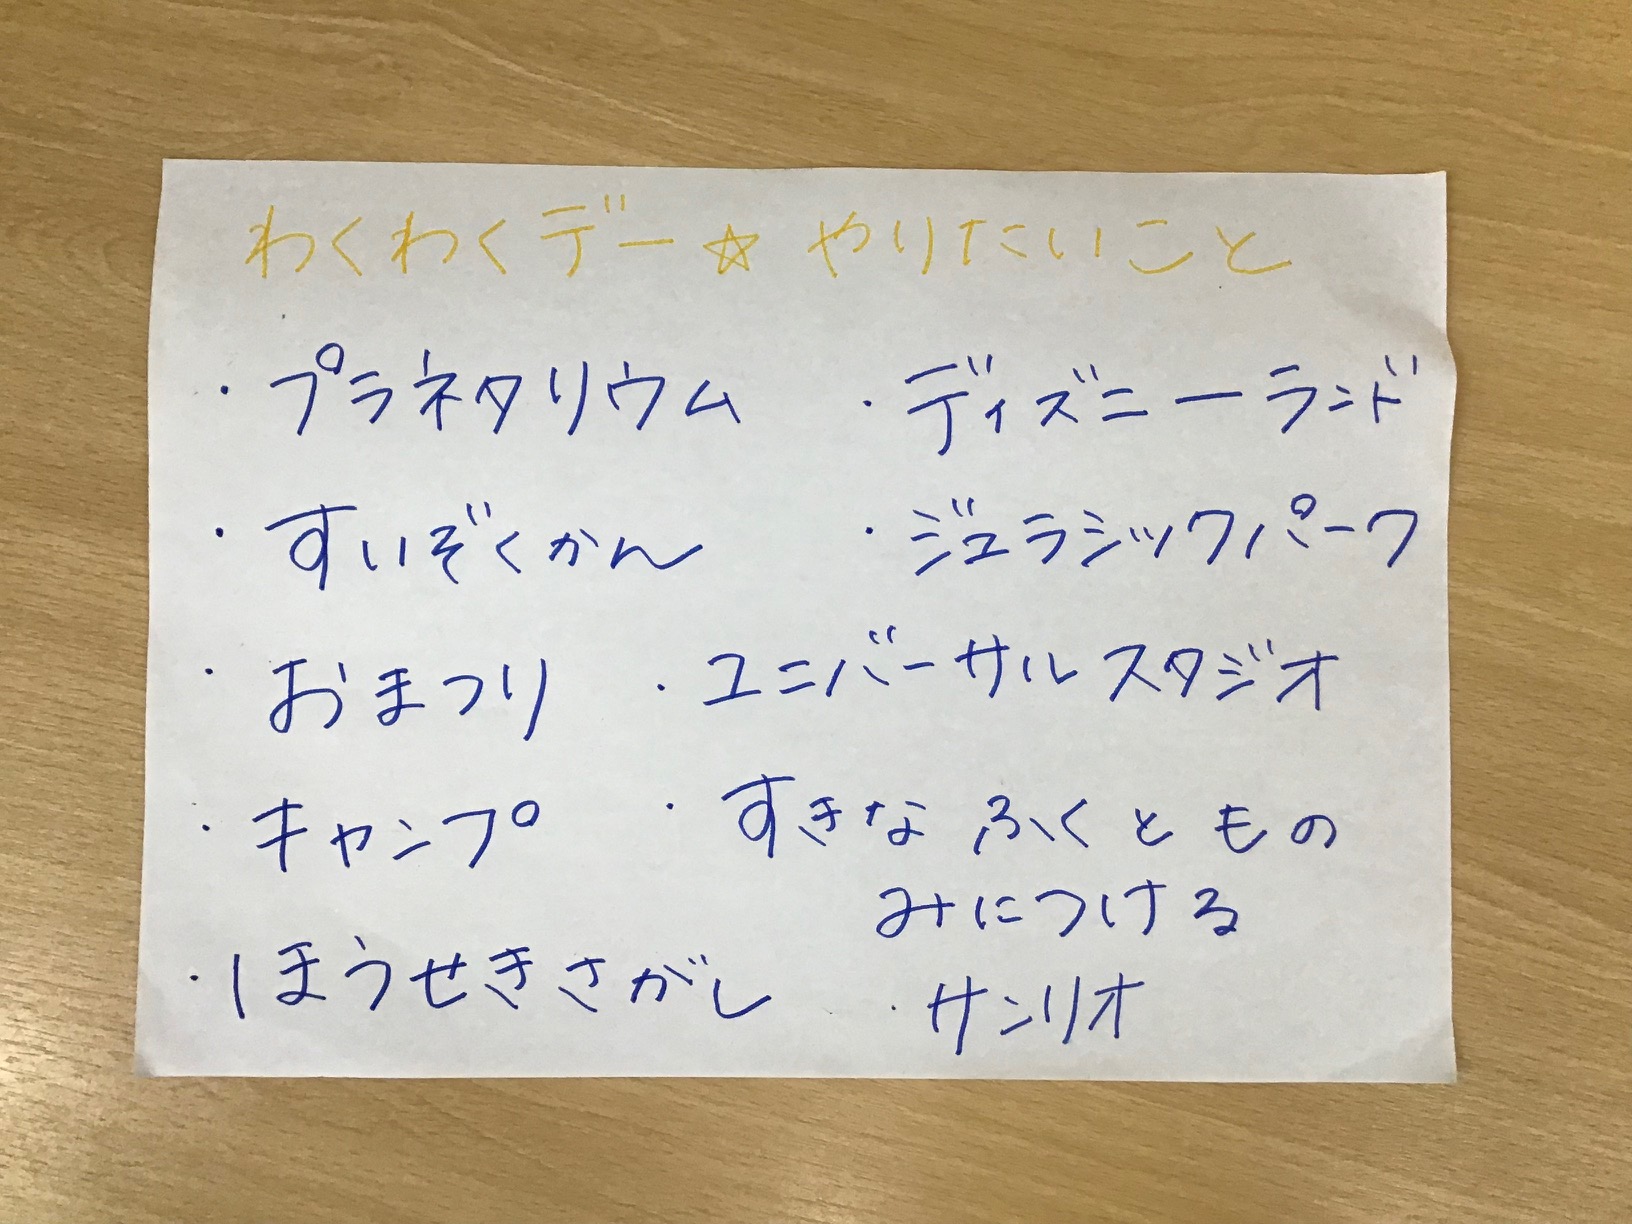 わくわくデー☆やりたいこと
・プラネタリウム
・すいぞくかん
・おまつり
・キャンプ
・ほうせきさがし
・ディズニーランド
・ジュラシックパーク
・ユニバーサルスタジオ
・すきな ふくと もの
みにつける
・サンリオ